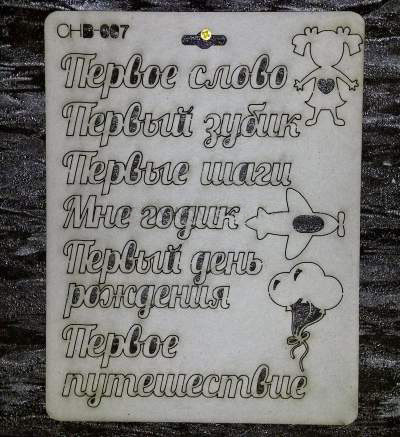 СНВ-007
Первое слово
Первый зубик
Первые шаги
Мне годик
Первый день
рождения
Первое
путешествие